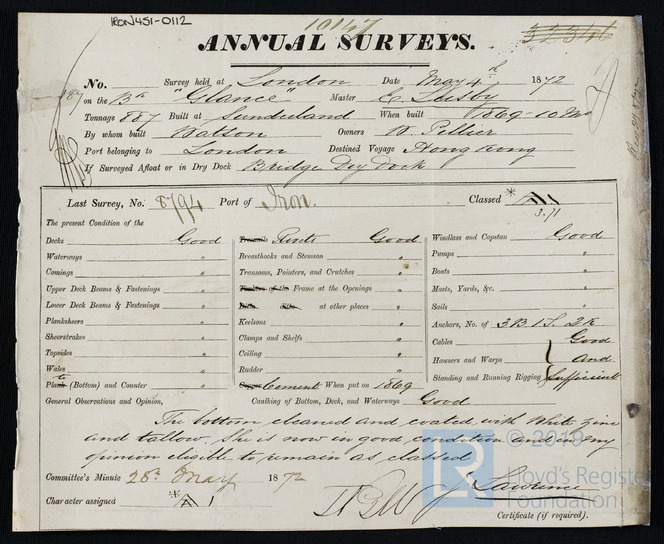 IRON451-0112
10147
ANNUAL SURVEYS.
No. Survey held at London Date May 4th 1872
887 on the Bk "Glance" Master
Tonnage 887 Built at Sunderland When built 1869-10 Mo
By whom built Watson Owners W. Pellier
Port belonging to London Destined Voyage Hong Kong
If Surveyed Afloat or in Dry Dock Bridge Dry Dock
Last Survey, No. 8794 Port of Iron. Classed * A
3.71
The present Condition of the
Decks Good
Waterways "
Comings "
Upper Deck Beams & Fastenings "
Lower Deck Beams & Fastenings "
Planksheers "
Sheerstrakes "
Topsides "
Wales "
Plank (Bottom) and Counter "
Treenails Rivets Good
Breasthooks and Stemson "
Transoms, Pointers, and Crutches "
Timbers of the Frame at the Openings "
Ditto ditto at other places "
Keelsons "
Clamps and Shelfs "
Ceiling "
Rudder "
Copper Cement When put on 1869
Windlass and Capstan Good
Pumps "
Boats "
Masts, Yards, &c. "
Sails "
Anchors, No. of 3 B. 1 S. 2 K
Cables Good
Hawsers and Warps And
Standing and Running Rigging Sufficient
General Observations and Opinion, Caulking of Bottom, Deck, and Waterways Good
The bottom cleaned and coated with White zinc
and tallow. She is now in good condition and in my
opinion eligible to remain as classed
Committee's Minute 28th May 1872
Character assigned A 1
J. Lawrence
Certificate (if required).
© 2019
LR
Lloyd's Register
Foundation